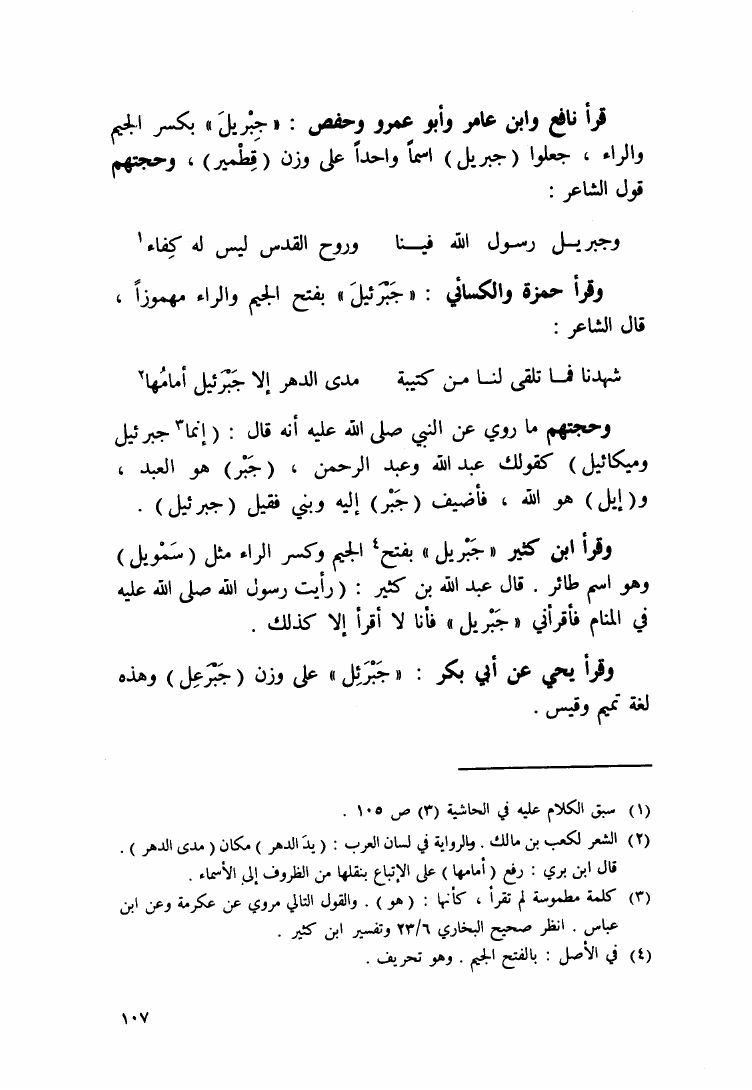 قرأ نافع وابن عامر وأبو عمرو وحفص : « جِبْرِيلَ » بكسر الجيم
والراء ، جعلوا ( جبريل ) اسماً واحداً على وزن ( قِطْمير ) ، وحجتهم
قول الشاعر :
وجبريـل رسـول الله فيـنا وروح القدس ليس له كِفاء١
وقرأ حمزة والكسائي : « جَبْرَئيلَ » بفتح الجيم والراء مهموزاً ،
قال الشاعر :
شهدنا فما تلقى لنـا مـن كتيبة مدى الدهر إلا جَبْرَئيل أمامُها٢
وحجتهم ما روي عن النبي صلى الله عليه أنه قال : ( إنما٣ جبرئيل
وميكائيل ) كقولك عبد الله وعبد الرحمن ، ( جَبْر ) هو العبد ،
و( إيل ) هو الله ، فأضيف ( جَبْر ) إليه وبني فقيل ( جبرئيل ) .
وقرأ ابن كثير « جَبْرِيل » بفتح٤ الجيم وكسر الراء مثل ( سَمْويل )
وهو اسم طائر . قال عبد الله بن كثير : ( رأيت رسول الله صلى الله عليه
في المنام فأقرأني « جَبْريل » فأنا لا أقرأ إلا كذلك .
وقرأ يحي عن أبي بكر : « جَبْرَئِل » على وزن ( جَبْرَعِل ) وهذه
لغة تميم وقيس .
(١) سبق الكلام عليه في الحاشية (٣) ص ١٠٥ .
(٢) الشعر لكعب بن مالك . والرواية في لسان العرب : ( يدَ الدهر ) مكان ( مدى الدهر ) .
قال ابن بري : رفع ( أمامها ) على الإتباع بنقلها من الظروف إلى الأسماء .
(٣) كلمة مطموسة لم تقرأ ، كأنها : ( هو ) . والقول التالي مروي عن عكرمة وعن ابن
عباس . انظر صحيح البخاري ٢٣/٦ وتفسير ابن كثير .
(٤) في الأصل : بالفتح الجيم . وهو تحريف .
١٠٧